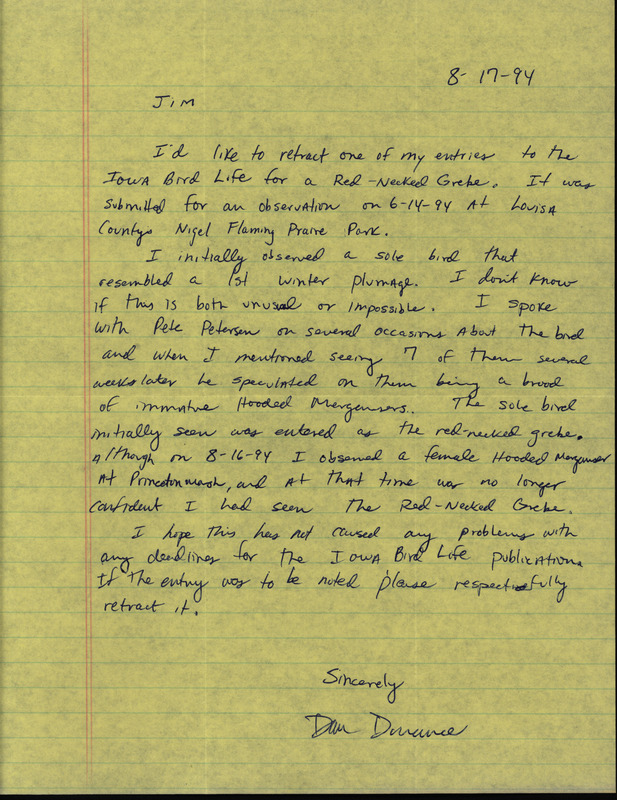 8-17-94
Jim
I'd like to retract one of my entries to the
Iowa Bird Life for a Red-Necked Grebe. It was
submitted for an observation on 6-14-94 At Louisa
Countys Nigel Flaming Praire Park.
I initially observed a sole bird that
resembled a 1st winter plumage. I don't know
if this is both unusual or impossible. I spoke
with Pete Petersen on several occasions About the bird
and when I mentioned seeing 7 of them several
weeks later he speculated on them being a brood
of immature Hooded Mergansers. The sole bird
initially seen was entered as the red-necked grebe.
Although on 8-16-94 I observed a female Hooded Merganser
At Princeton marsh, and At that time was no longer
confident I had seen the Red-Necked Grebe.
I hope this has not caused any problems with
any deadlines for the Iowa Bird Life publication.
If the entry was to be noted please respectfully
retract it.
Sincerely
Dan